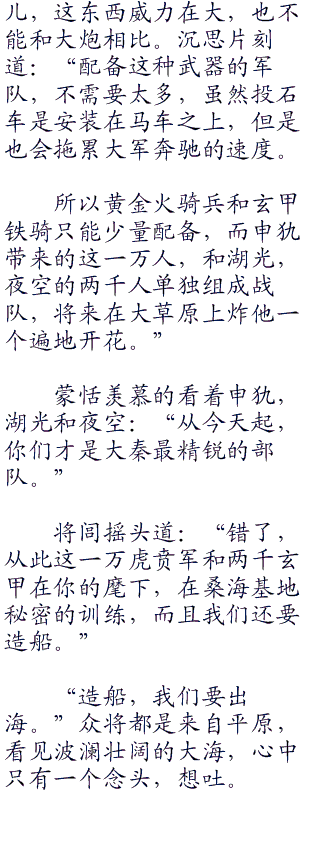 儿，这东西威力在大，也不
能和大炮相比。沉思片刻
道：“配备这种武器的军
队，不需要太多，虽然投石
车是安装在马车之上，但是
也会拖累大军奔驰的速度。
所以黄金火骑兵和玄甲
铁骑只能少量配备，而申犰
带来的这一万人，和湖光，
夜空的两千人单独组成战
队，将来在大草原上炸他一
个遍地开花。”
蒙恬羡慕的看着申犰，
湖光和夜空：“从今天起，
你们才是大秦最精锐的部
队。”
将闾摇头道：“错了，
从此这一万虎贲军和两千玄
甲在你的麾下，在桑海基地
秘密的训练，而且我们还要
造船。”
“造船，我们要出
海。”众将都是来自平原，
看见波澜壮阔的大海，心中
只有一个念头，想吐。